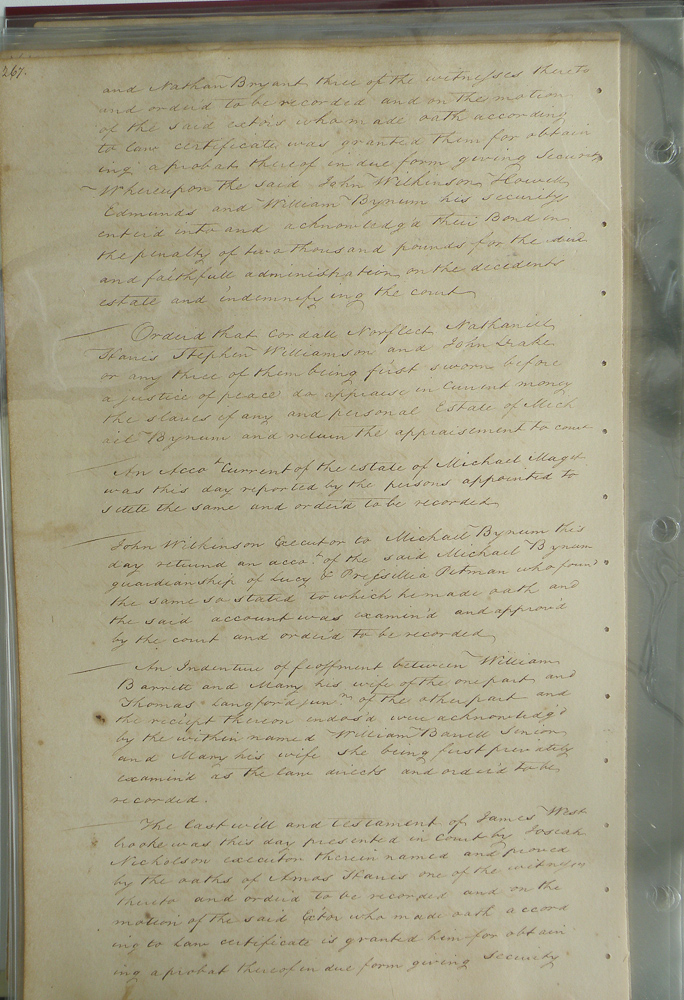 267.
and Nathan Bryant three of the witnesses thereto
and orderd to be recorded and on the motion
of the said extors who made oath according
to law certificate was granted them for obtain
ing a probat thereof in due form giving Security
Whereupon the said John Wilkinson Howell
Edmunds and William Bynum his security
enter'd into and acknowledg'd their Bond in
the penalty of two thousand pounds for the due
and faithfull administration on the decidents
estate and indemnifying the court
Orderd that Cordall Norfleet Nathaniel
Stephen Williamson and John Drake
or any three of them being first sworn before
a justice of peace do appraise in Current money
the slaves if any and personal Estate of Mich
ael Bynum and return the appraisement to court
An Acco.t Current of the estate of Michael
was this day reported by the persons appointed to
state the same and order'd to be recorded
John Wilkinson Executor to Michael Bynum this
day returnd an acco.t of the said Michael Bynum
guardianship of Lucy & Pitman who found
the same so stated to which he made oath and
the said account was examin'd and approvd
by the court and order'd to be recorded
An Indenture of feoffment between William
Barrett and Mary his wife of the one part and
Thomas Langford jun.r of the other part and
the reciept thereon endos'd were acknowledg'd
by the within named William Barrett Senior
and Mary his wife she being first privately
examin'd as the law directs and order'd to be
recorded.
The last will and testament of James West
brooke was this day presented in court by Josiah
Nicholson executor therein named and proved
by the oaths of Amos one of the witnesses
thereto and order'd to be recorded and on the
motion of the said Extor who made oath accord
ing to law certificate is granted him for obtain
ing a probat thereof in due form giving security